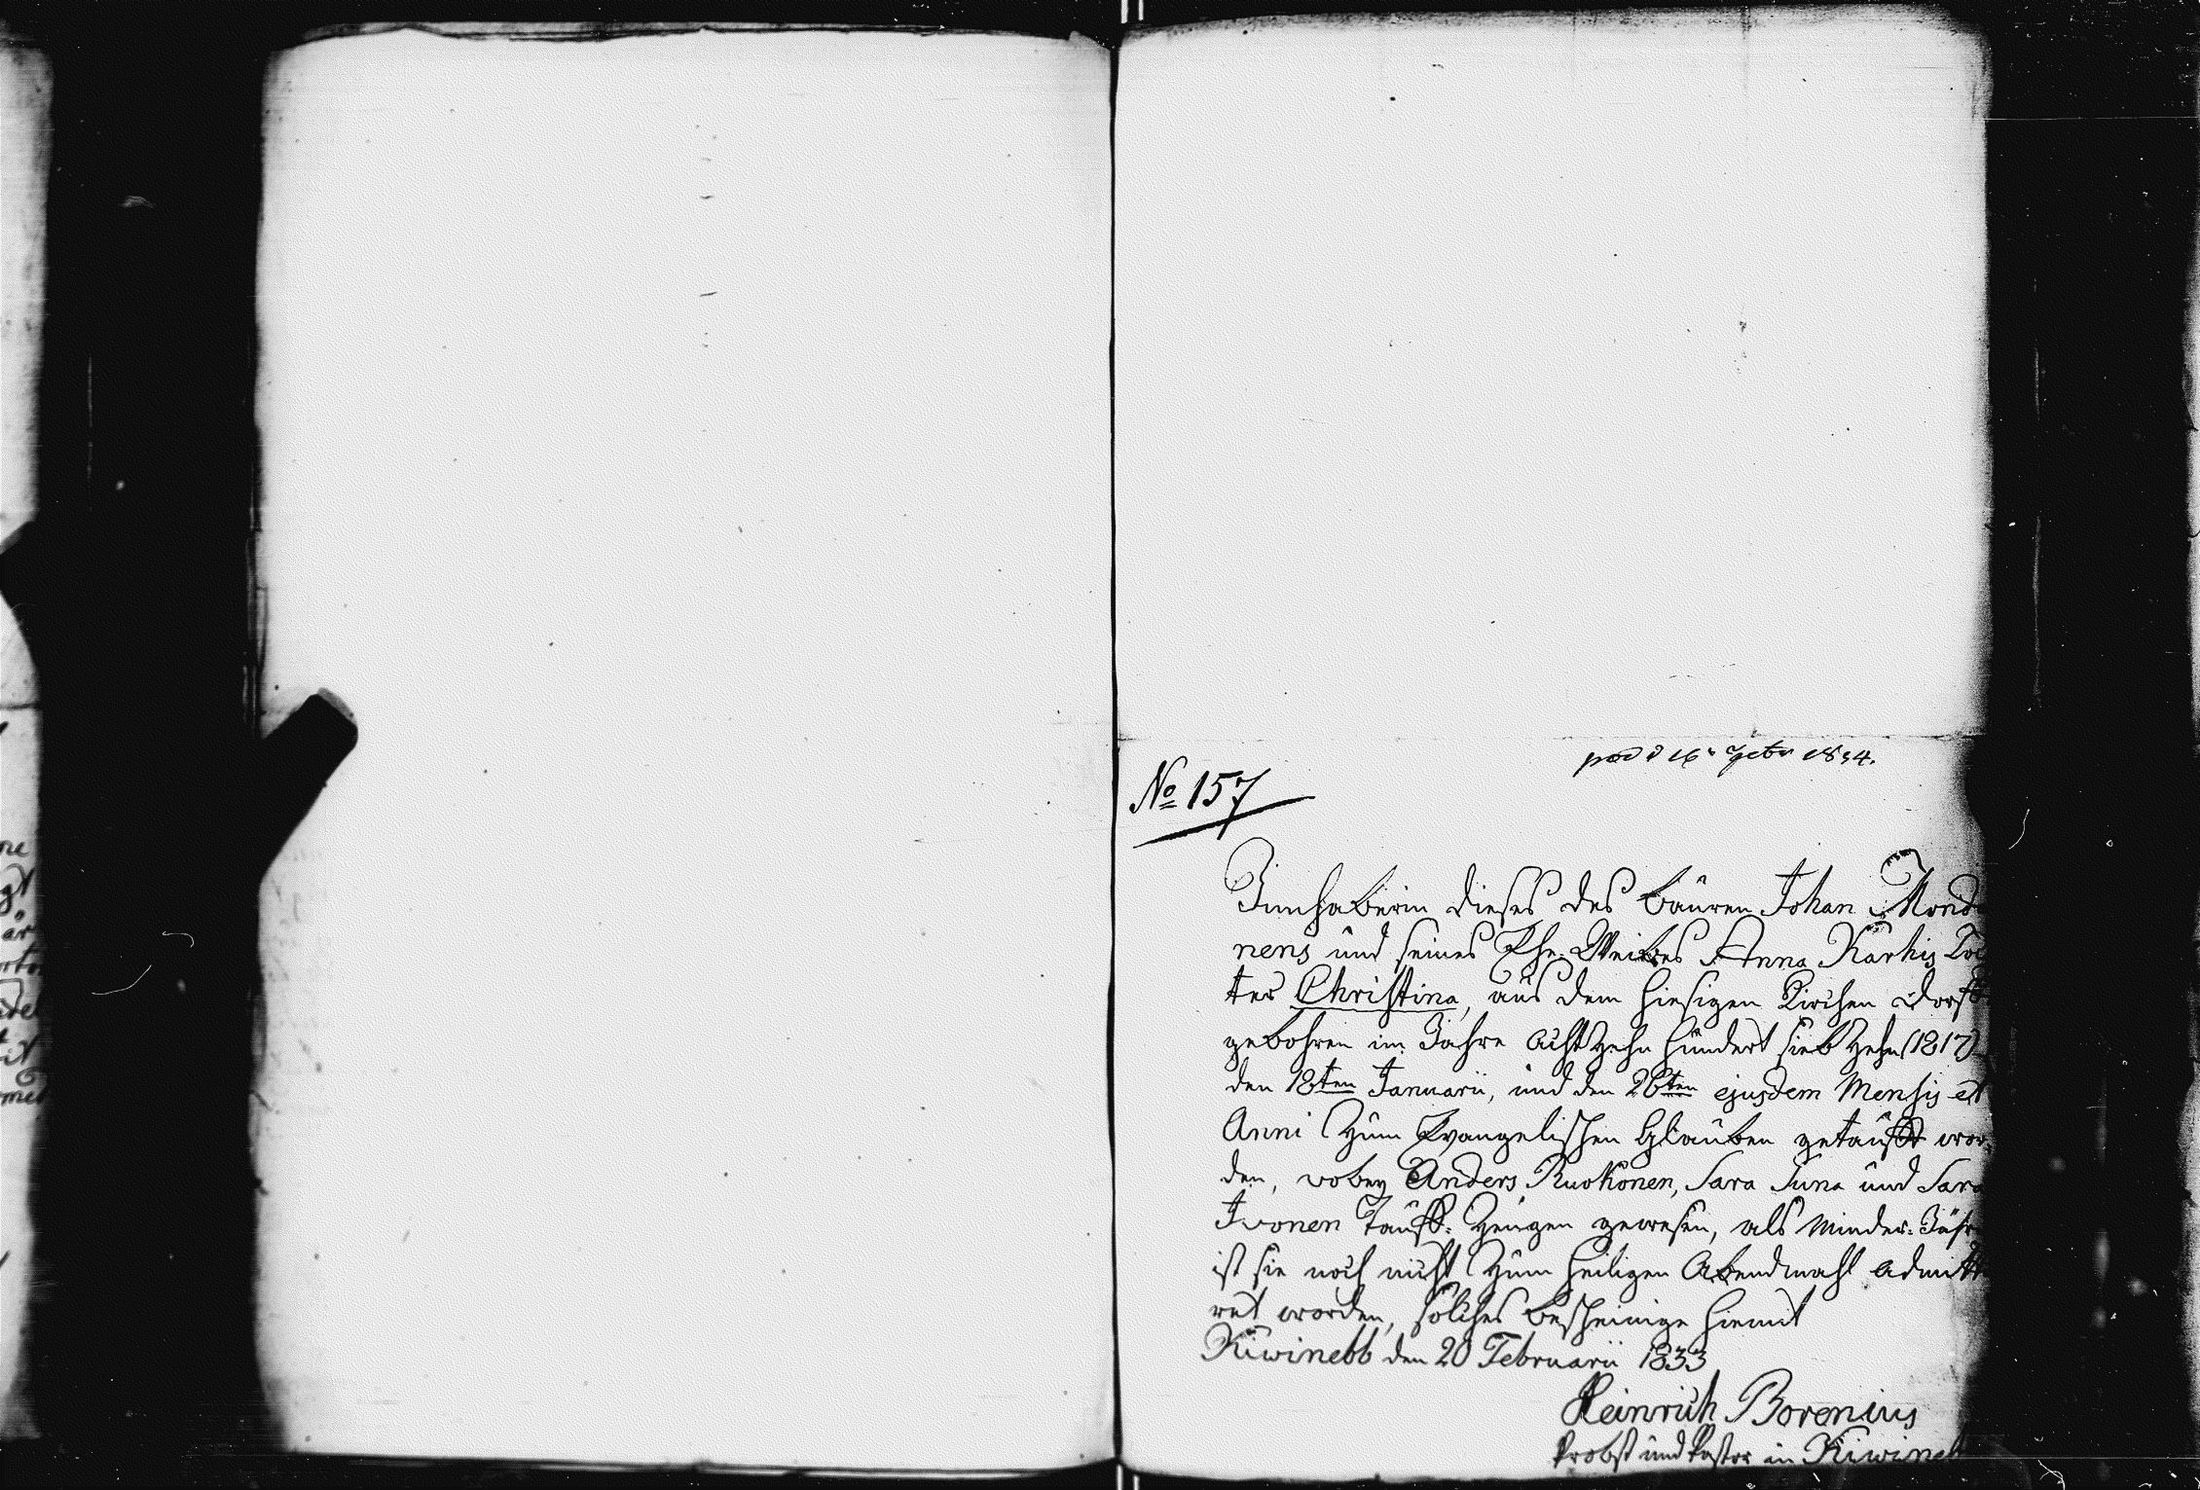 No 157
Innhaberin dieses des Bauren Johan Mond
nens und seines Ehe-Weibes Anna Karhis Toc
ter Christina, aus dem hiesigen Kirchen Dorff
gebohren im Jahre Achtzehn hundert sieb zehn (1817)
den 18ten Januarii, und den 26ten ejusdem Mensis et
Anni zum Evangelischen Glauben getaufft wor-
den, wobey Anders Ruokonen, Sara Suna und Sara
Ivonen Tauff-Zeugen gewesen, als Minder-Jähr
ist sie noch nicht zum heiligen Abendmahl admitt
ret worden, solches bescheinige hiemit
Kiwinebb den 20 Februarii 1833
Heinrich Borenius
Probst und Pastor in Kiwineb